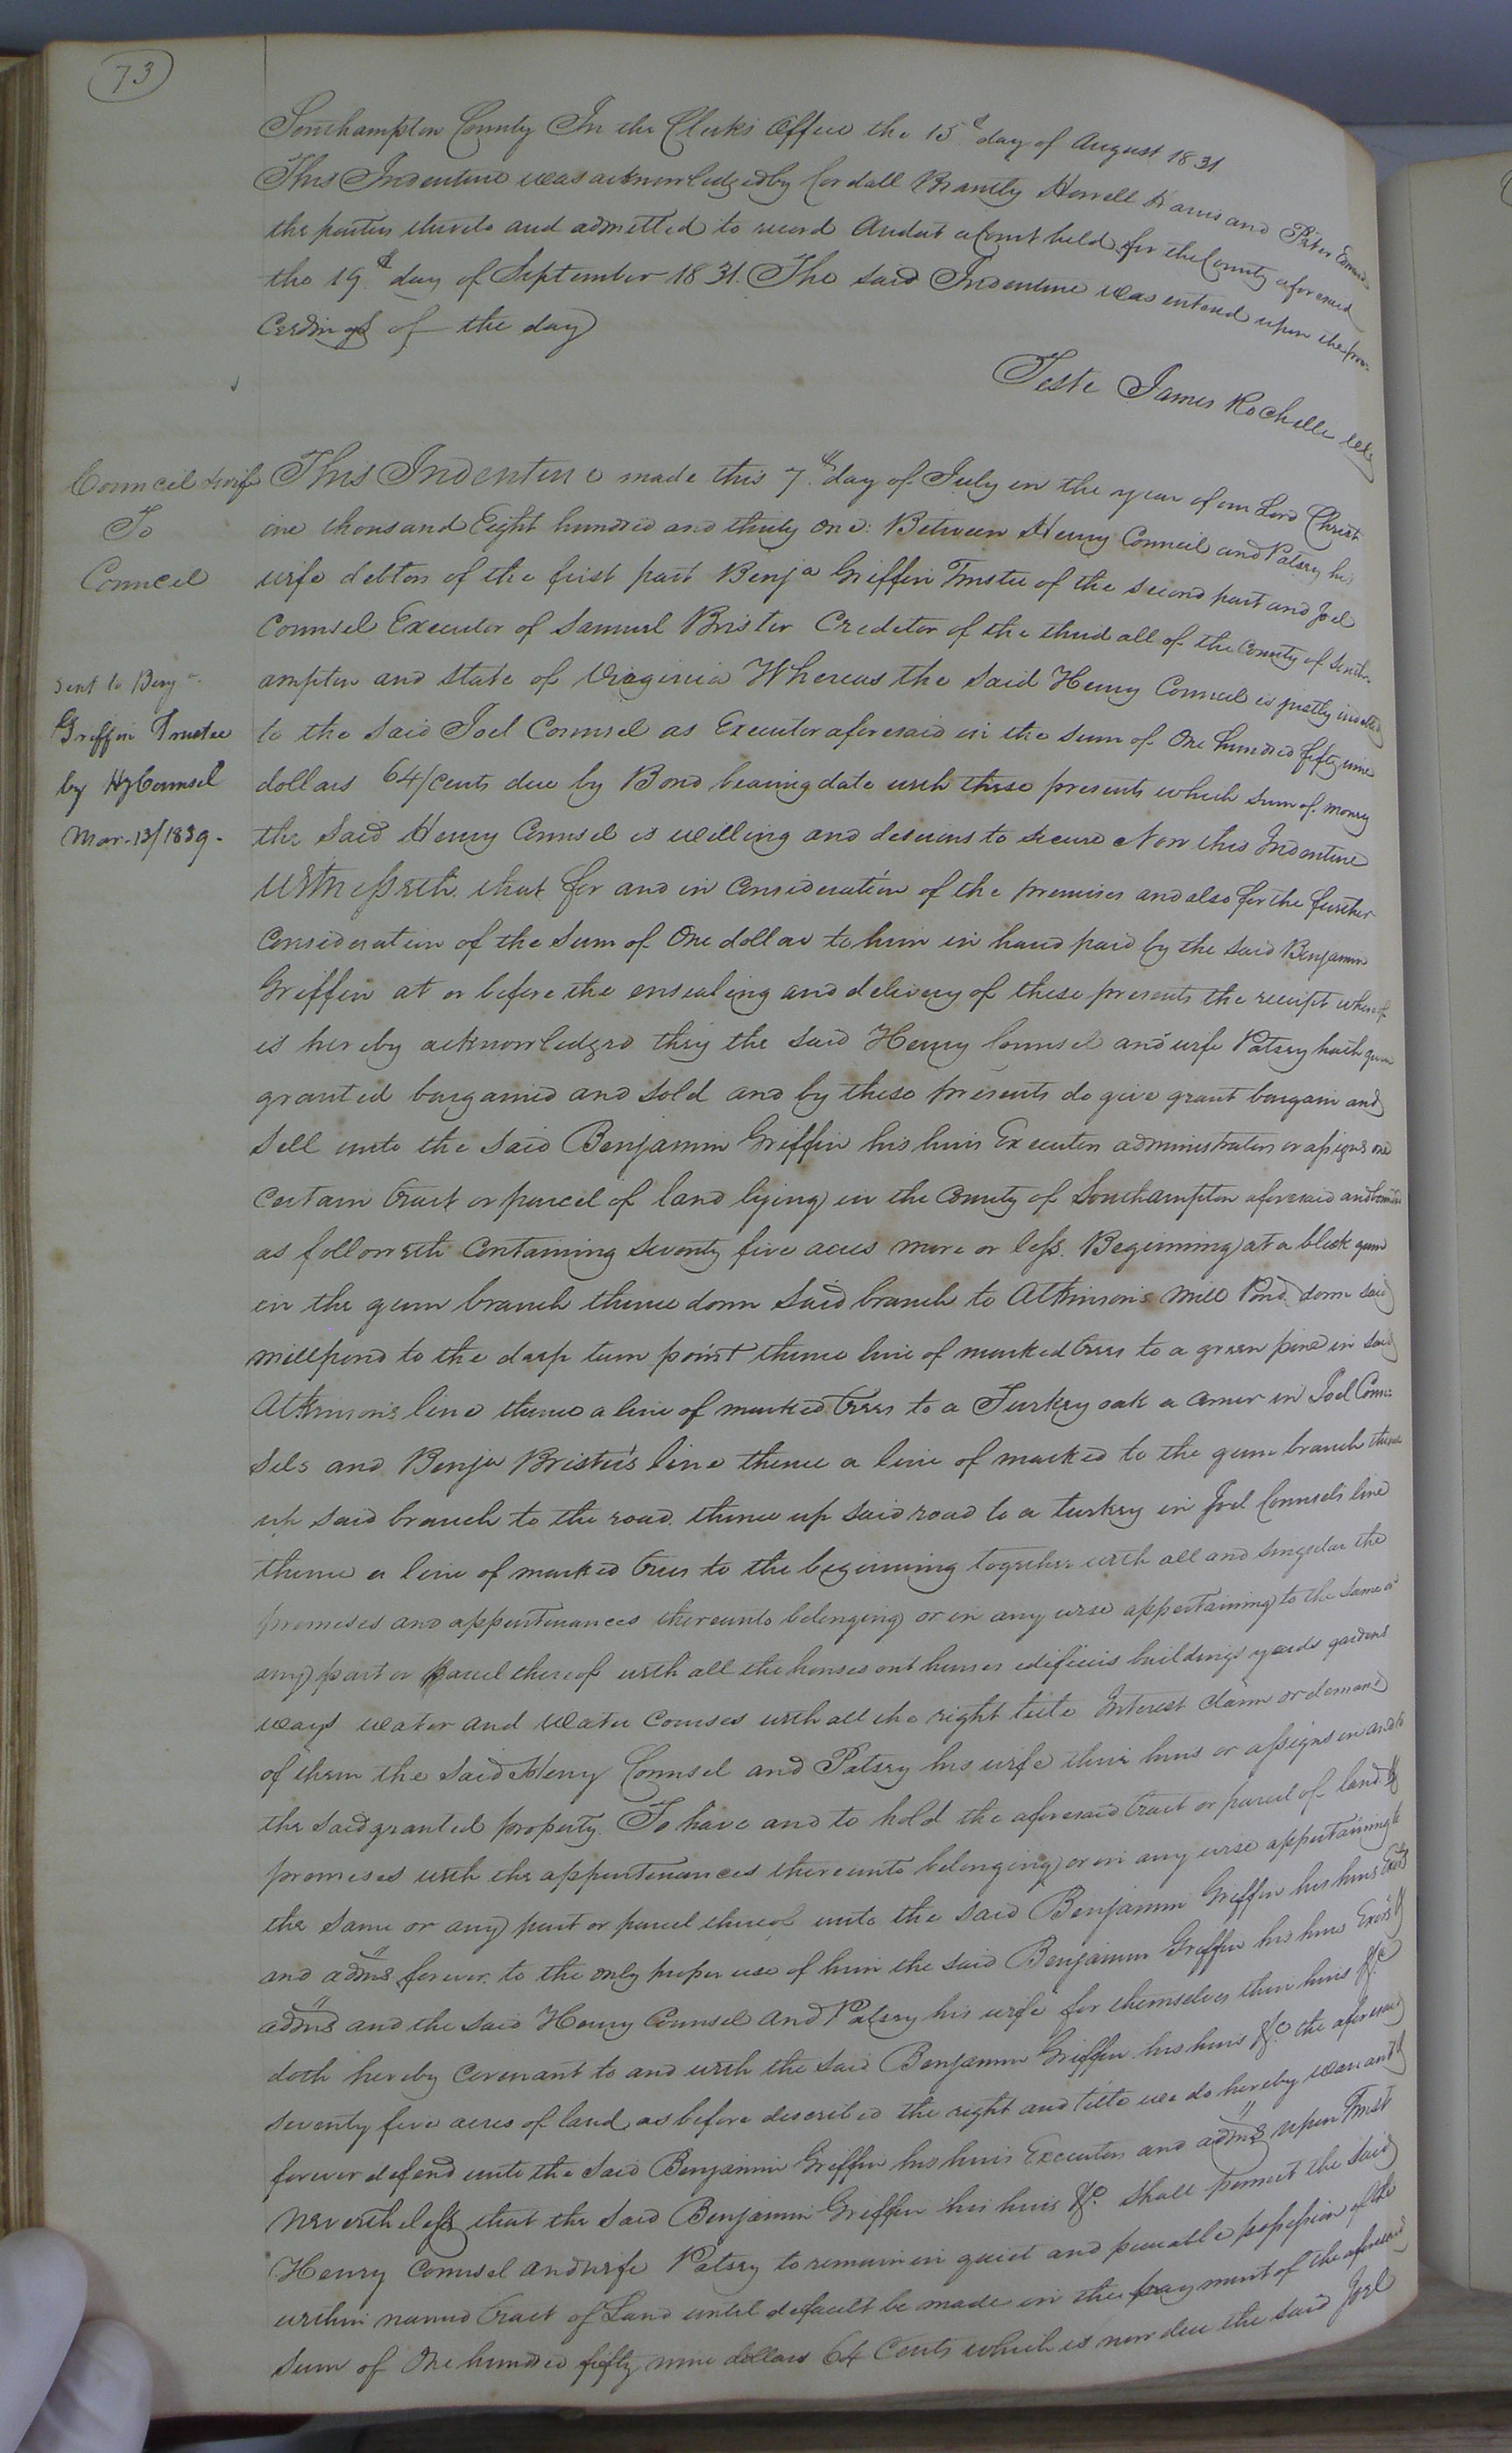 73
Southampton County In the Clerks Office the 15th day of August 1831
This Indenture was acknowledged by Cordall Brantly Howell Harris and Peter Edwards
the parties thereto and admitted to record And at a Court held for the County aforesaid
the 19th day of September 1831. The said Indenture was entered upon the pro-
ceedings of the day
Teste James Rochelle
Council & wife
To
Council
Sent to Benja
Griffin Trustee
by Hy Counsel
Mar. 13/1839.
This Indenture made this 7th day of July in the year of our Lord Christ
one thousand Eight hundred and thirty one: Between Henry Council and Patsey his
wife debtors of the first part Benja Griffin Trustee of the second part and Joel
Counsel Executor of Samuel Brister Credetor of the third all of the County of South-
ampton and State of Virginia Whereas the said Henry Council is justly indebted
to the said Joel Counsel as Executor aforesaid in the sum of One hundred fifty nine
dollars 64/cents due by Bond bearing date with these presents which sum of money
the said Henry Counsel is willing and desirous to secure Now this Indenture
Witnesseth that for and in Consideration of the premises and also for the further
Consideration of the sum of One dollar to him in hand paid by the said Benjamin
Griffin at or before the ensealing and delivery of these presents the receipt whereof
is hereby acknowledged they the said Henry Counsel and wife Patsey hath given
granted bargained and sold and by these presents do give grant bargain and
sell unto the said Benjamin Griffin his heirs Executors administrators or assigns one
certain tract or parcel of land lying in the County of Southampton aforesaid and bounded
as followeth Containing seventy five acres more or less. Beginning at a black gum
in the gum branch thence down said branch to Atkinson's Mill Pond down said
millpond to the deep turn point thence line of marked trees to a green pine in said
Atkinson's line thence a line of marked trees to a Turkey oak a corner in Joel Coun-
sels and Benja Brister's line thence a line of marked to the gum branch thence
up said branch to the road. thence up said road to a turkey in Joel Counsels line
thence a line of marked trees to the beginning together with all and singular the
premises and appurtenances thereunto belonging or in any wise appertaining to the same or
any part or parcel thereof with all the houses out houses edifices buildings yards gardens
ways water and water courses with all the right title Interest claim or demand
of them the said Henry Counsel and Patsey his wife their heirs or assigns in and to
the said granted property. To have and to hold the aforesaid tract or parcel of land &
premises with the appurtenances thereunto belonging or in any wise appertaining to
the same or any part or parcel thereof unto the said Benjamin Griffin his heirs Exors
and adms forever. to the only proper use of him the said Benjamin Griffin his heirs Exors &
adms and the said Henry Counsel and Patsey his wife for themselves their heirs &c
doth hereby Covenant to and with the said Benjamin Griffin his heirs &c the aforesaid
seventy five acres of land as before described the right and title we do hereby warrant &
forever defend unto the said Benjamin Griffin his heirs Executors and adms upon Trust
nevertheless that the said Benjamin Griffin his heirs &c shall permit the said
Henry Counsel and wife Patsey to remain in quiet and peacable possession of the
within named tract of Land until default be made in the payment of the aforesaid
sum of One hundred fifty nine dollars 64 Cents which is now due the said Joel